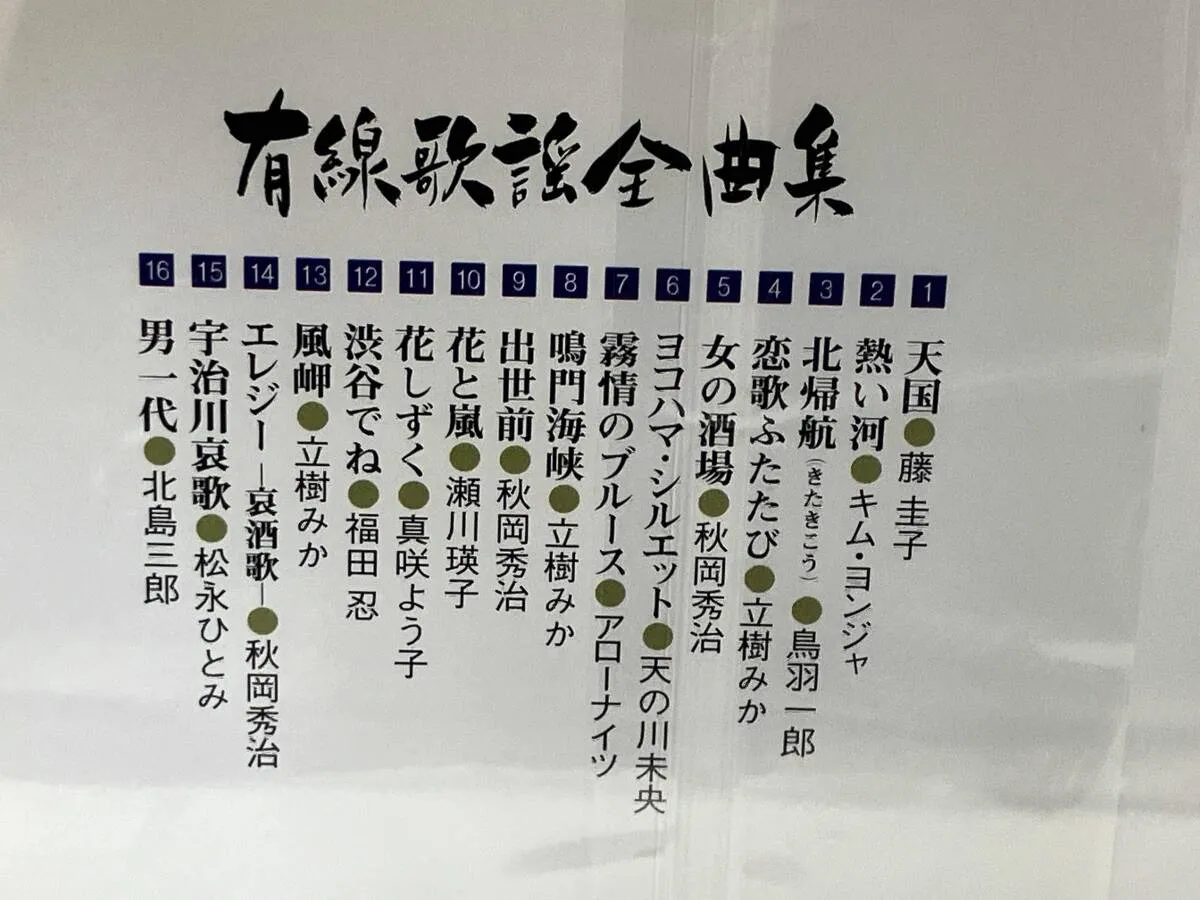 有線歌謡全曲集
1 天国●藤 圭子
2 熱い河●キム・ヨンジャ
3 北帰航(きたきこう)●鳥羽一郎
4 恋歌ふたたび●立樹みか
5 女の酒場●秋岡秀治
6 ヨコハマ・シルエット●天の川未央
7 霧情のブルース●アローナイツ
8 鳴門海峡●立樹みか
9 出世前●秋岡秀治
10 花と嵐●瀬川瑛子
11 花しずく●真咲よう子
12 渋谷でね●福田 忍
13 風岬●立樹みか
14 エレジー ―哀酒歌―●秋岡秀治
15 宇治川哀歌●松永ひとみ
16 男一代●北島三郎